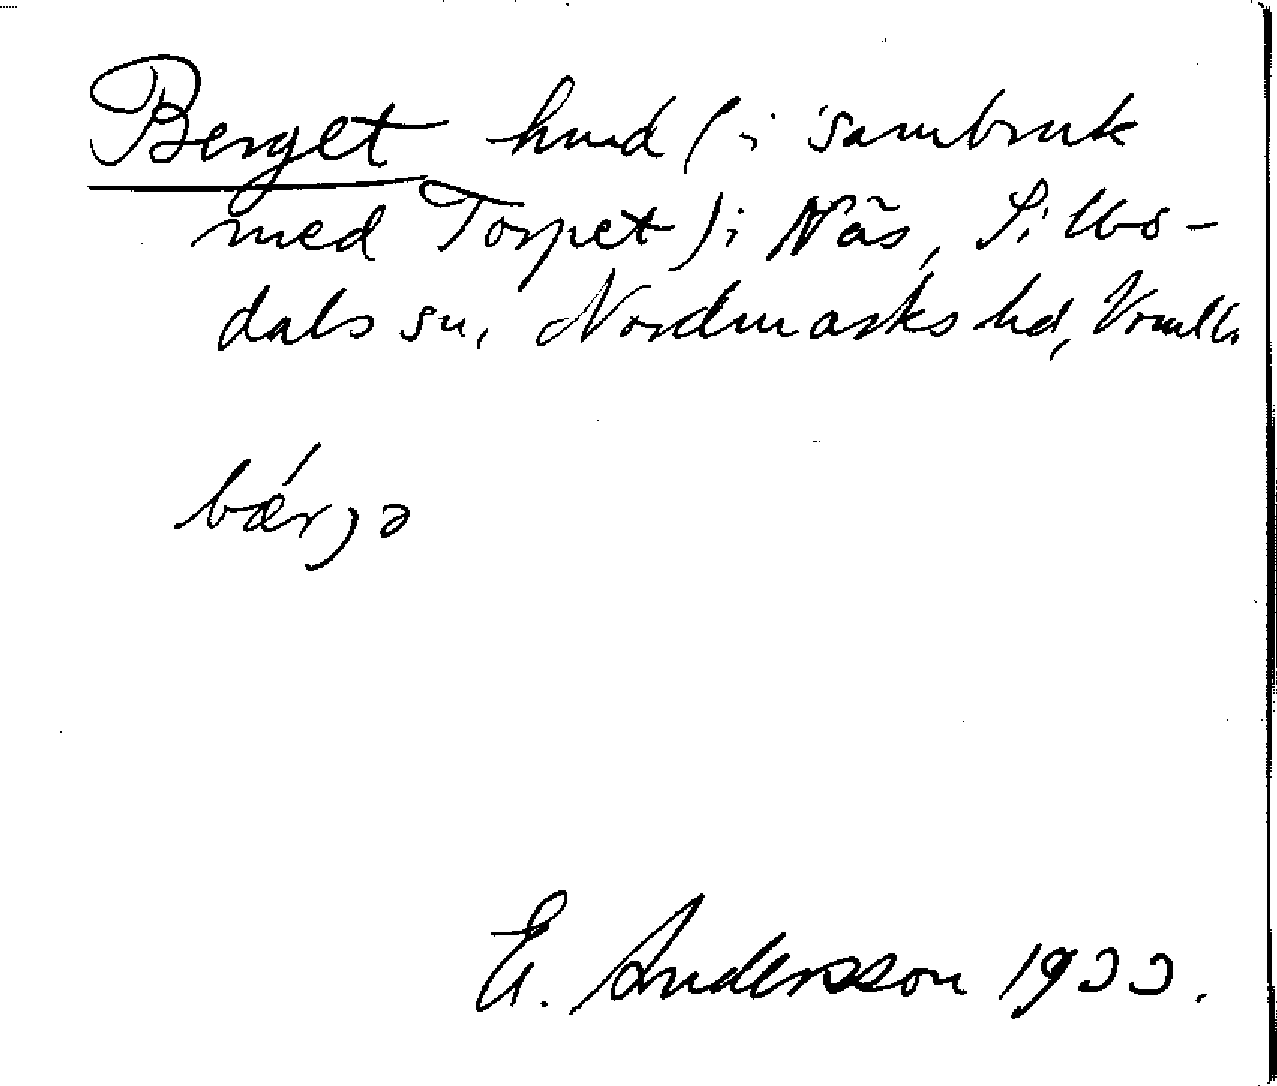 Berget hmd (i sambruk
med Torpet) i Näs, Silbo-
dals sn, Nordmarks hd, Vrmlds
bǽrjə
E. Andersson 1933.